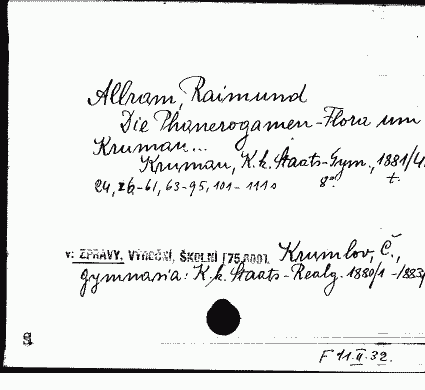 Allram, Raimund
Die Phanerogamen-Flora um
Krumau...
Krumau, K. k. Staats-Gym., 1881/4.
24, 26-61, 63-95, 101-111 s 8° t.
v: ZPRÁVY, VÝROČNÍ, ŠKOLNÍ [75,600]. Krumlov, Č.,
gymnasia: K. k. Staats-Realg. 1880/1-/883/
F 11.II.32.